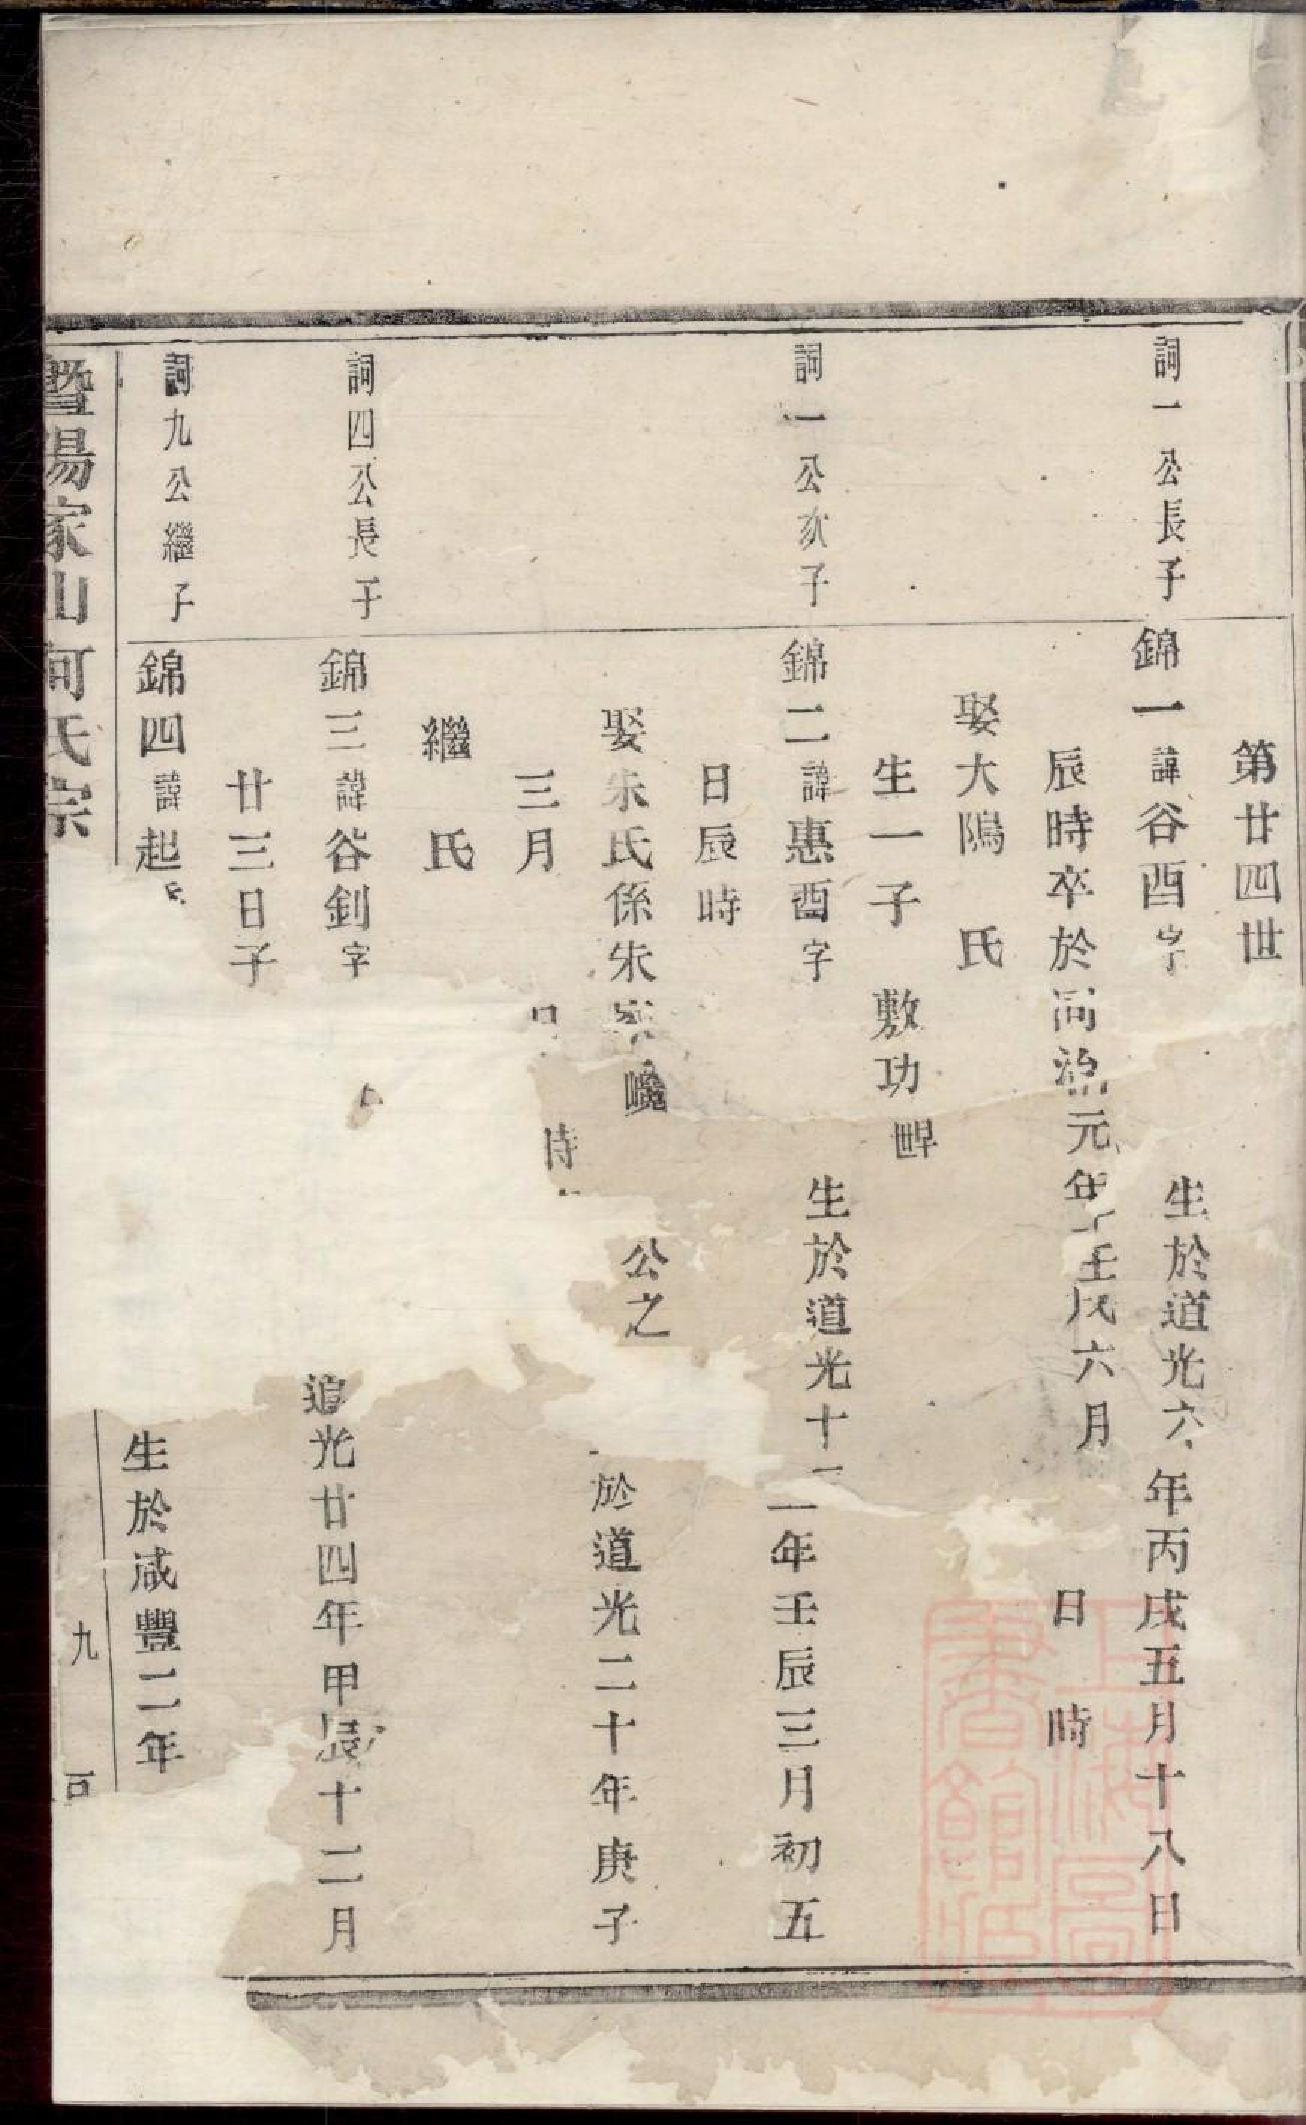 第廿四世
詞一公長子
錦一諱谷酉字 生於道光六年丙戌五月十八日
辰時卒於同治元年壬戌六月 日 時
娶大隖 氏
生一子 敷功
詞一公次子
錦二諱惠酉字 生於道光十二年壬辰三月初五
日辰時
娶朱氏係朱 公之 於道光二十年庚子
三月 日 時
繼 氏
詞四公長子
錦三諱谷釗字 道光廿四年甲辰十二月
廿三日子
詞九公繼子
錦四諱起 生於咸豐二年
暨陽家山何氏宗
九
上海圖書館藏